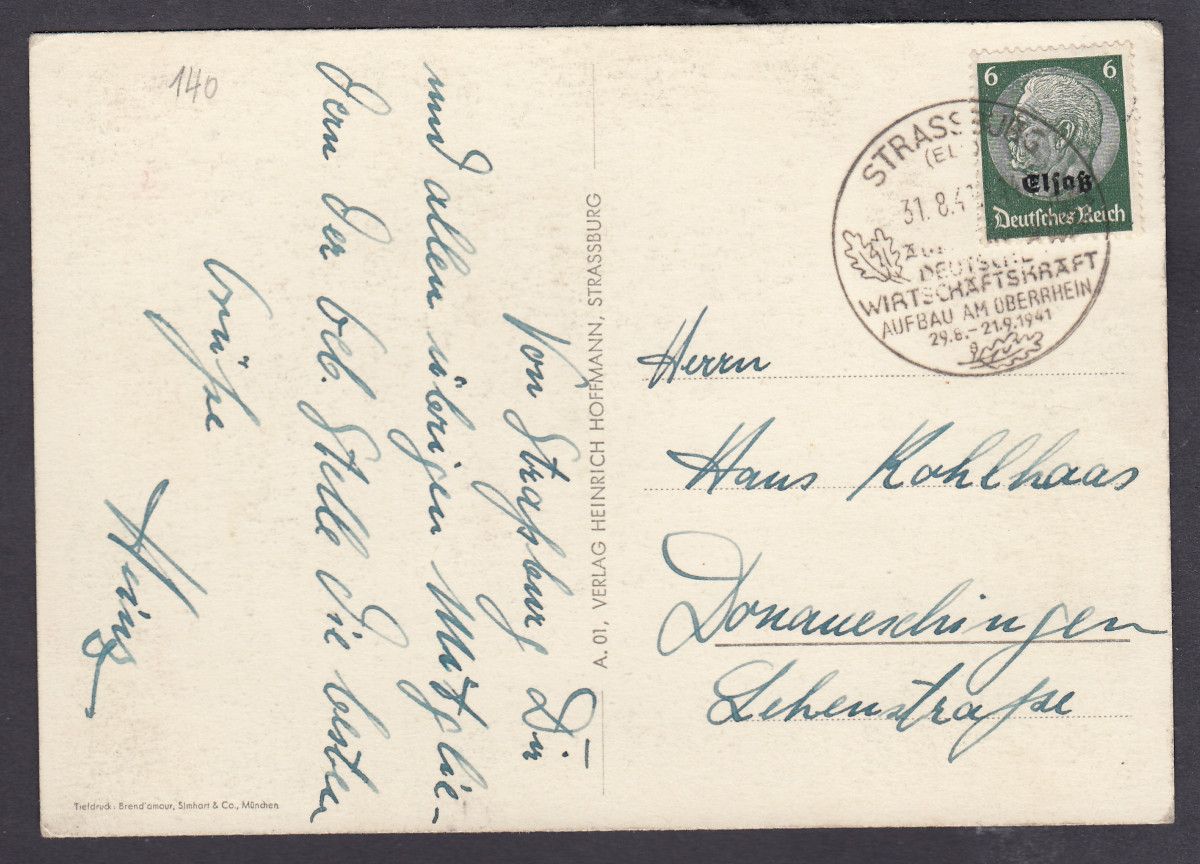 140
Von Straßburg Dir
und allen übrigen Mitglie-
dern der bek. Stelle die besten
Grüße
Heinz
A. 01, VERLAG HEINRICH HOFFMANN, STRASSBURG
Tiefdruck: Brend'amour, Simhart & Co., München
6 6
Elsaß
Deutsches Reich
STRASSBURG
31.8.41
DEUTSCHE
WIRTSCHAFTSKRAFT
AUFBAU AM OBERRHEIN
29.8.–21.9.1941
Herrn
Hans Kohlhaas
Donaueschingen
Lehenstraße